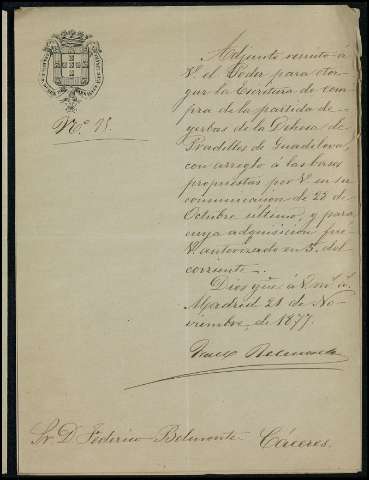 Nº. 75.
Adjunto remito á
V. el Poder para otor-
gar la Escritura de com-
pra de la partida de
yerbas de la Dehesa de
de Guadiloba,
con arreglo á las bases
propuestas por V. en su
comunicacion de 23 de
Octubre último, y para
cuya adquisicion fué
V. autorizado en 5. del
corriente.
Dios gue. á V. ms. as.
Madrid 21 de No-
viembre, de 1877.
Sr. D. Federico Belmonte Cáceres.